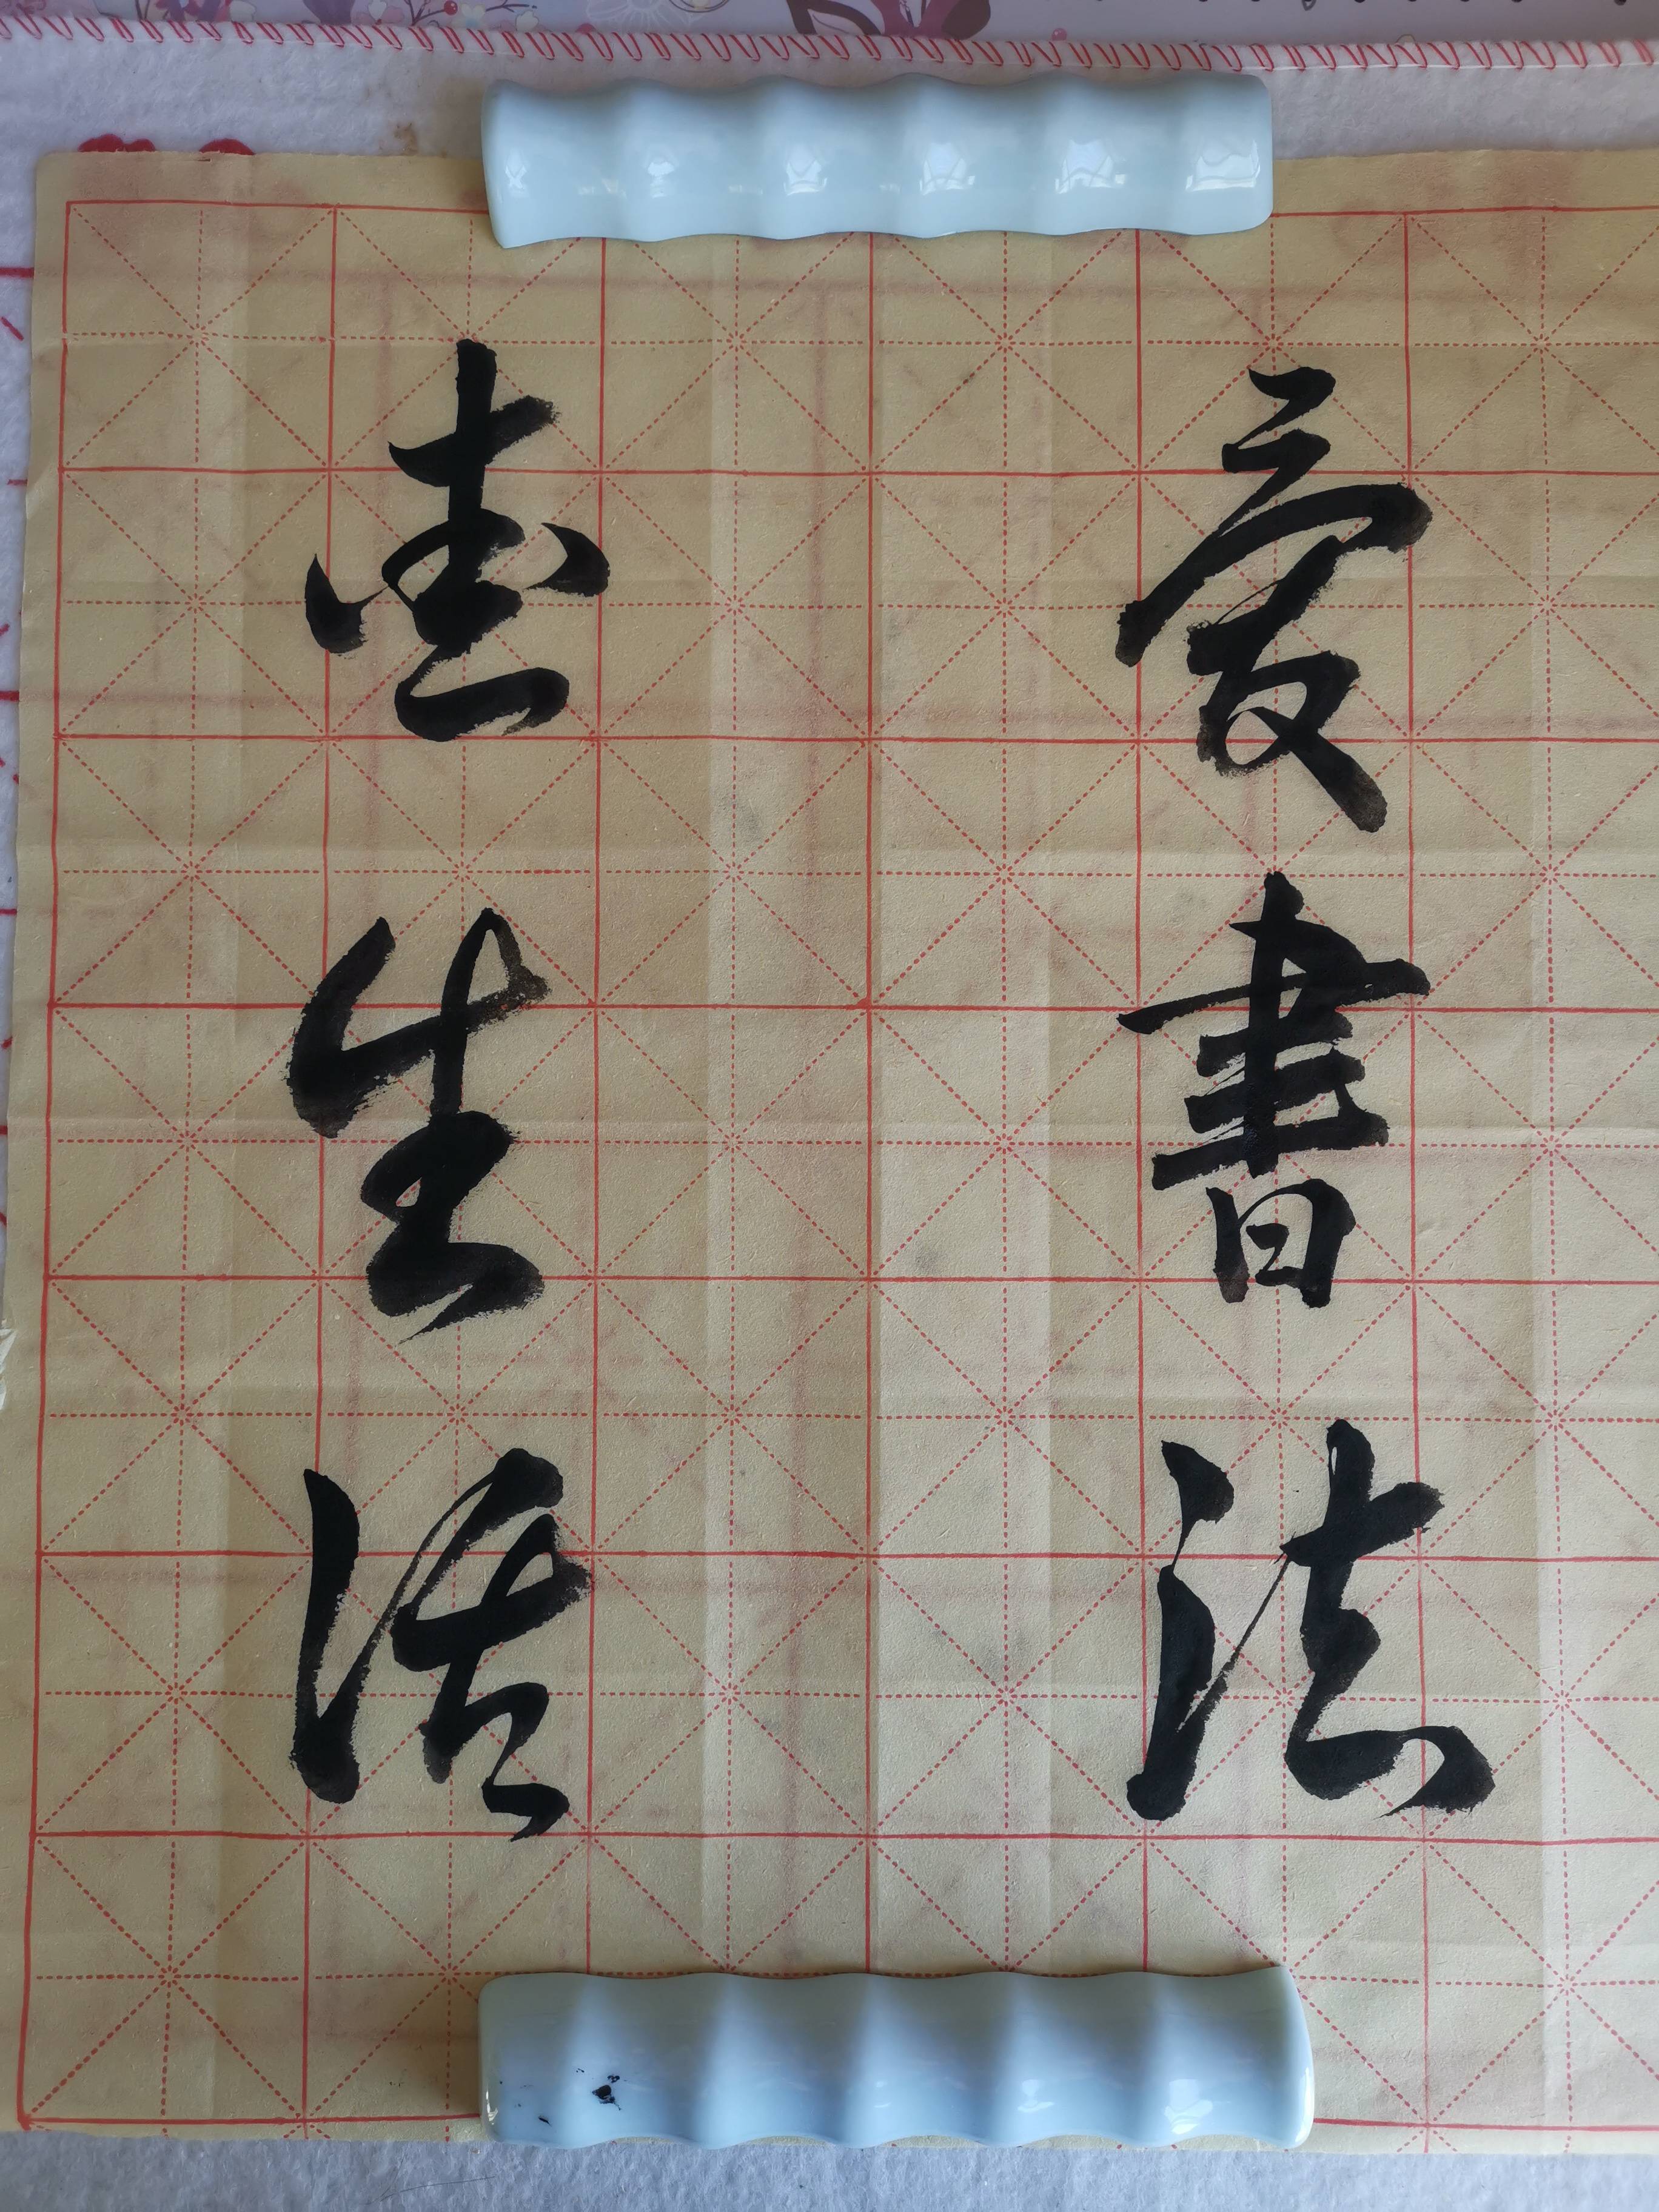 爱書法
生活